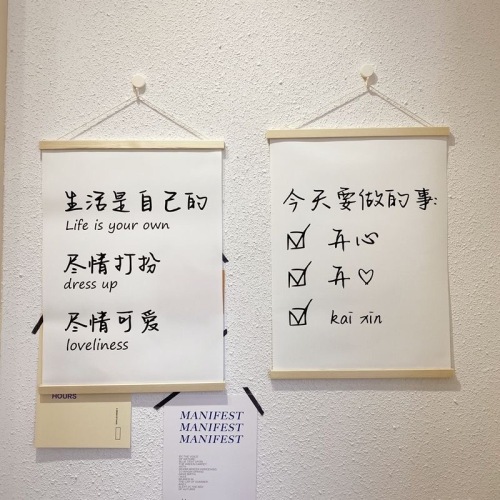 生活是自己的
Life is your own
尽情打扮
dress up
尽情可爱
loveliness
今天要做的事:
☑ 开心
☑ 开♡
☑ kāi xīn
HOURS
MANIFEST
MANIFEST
MANIFEST